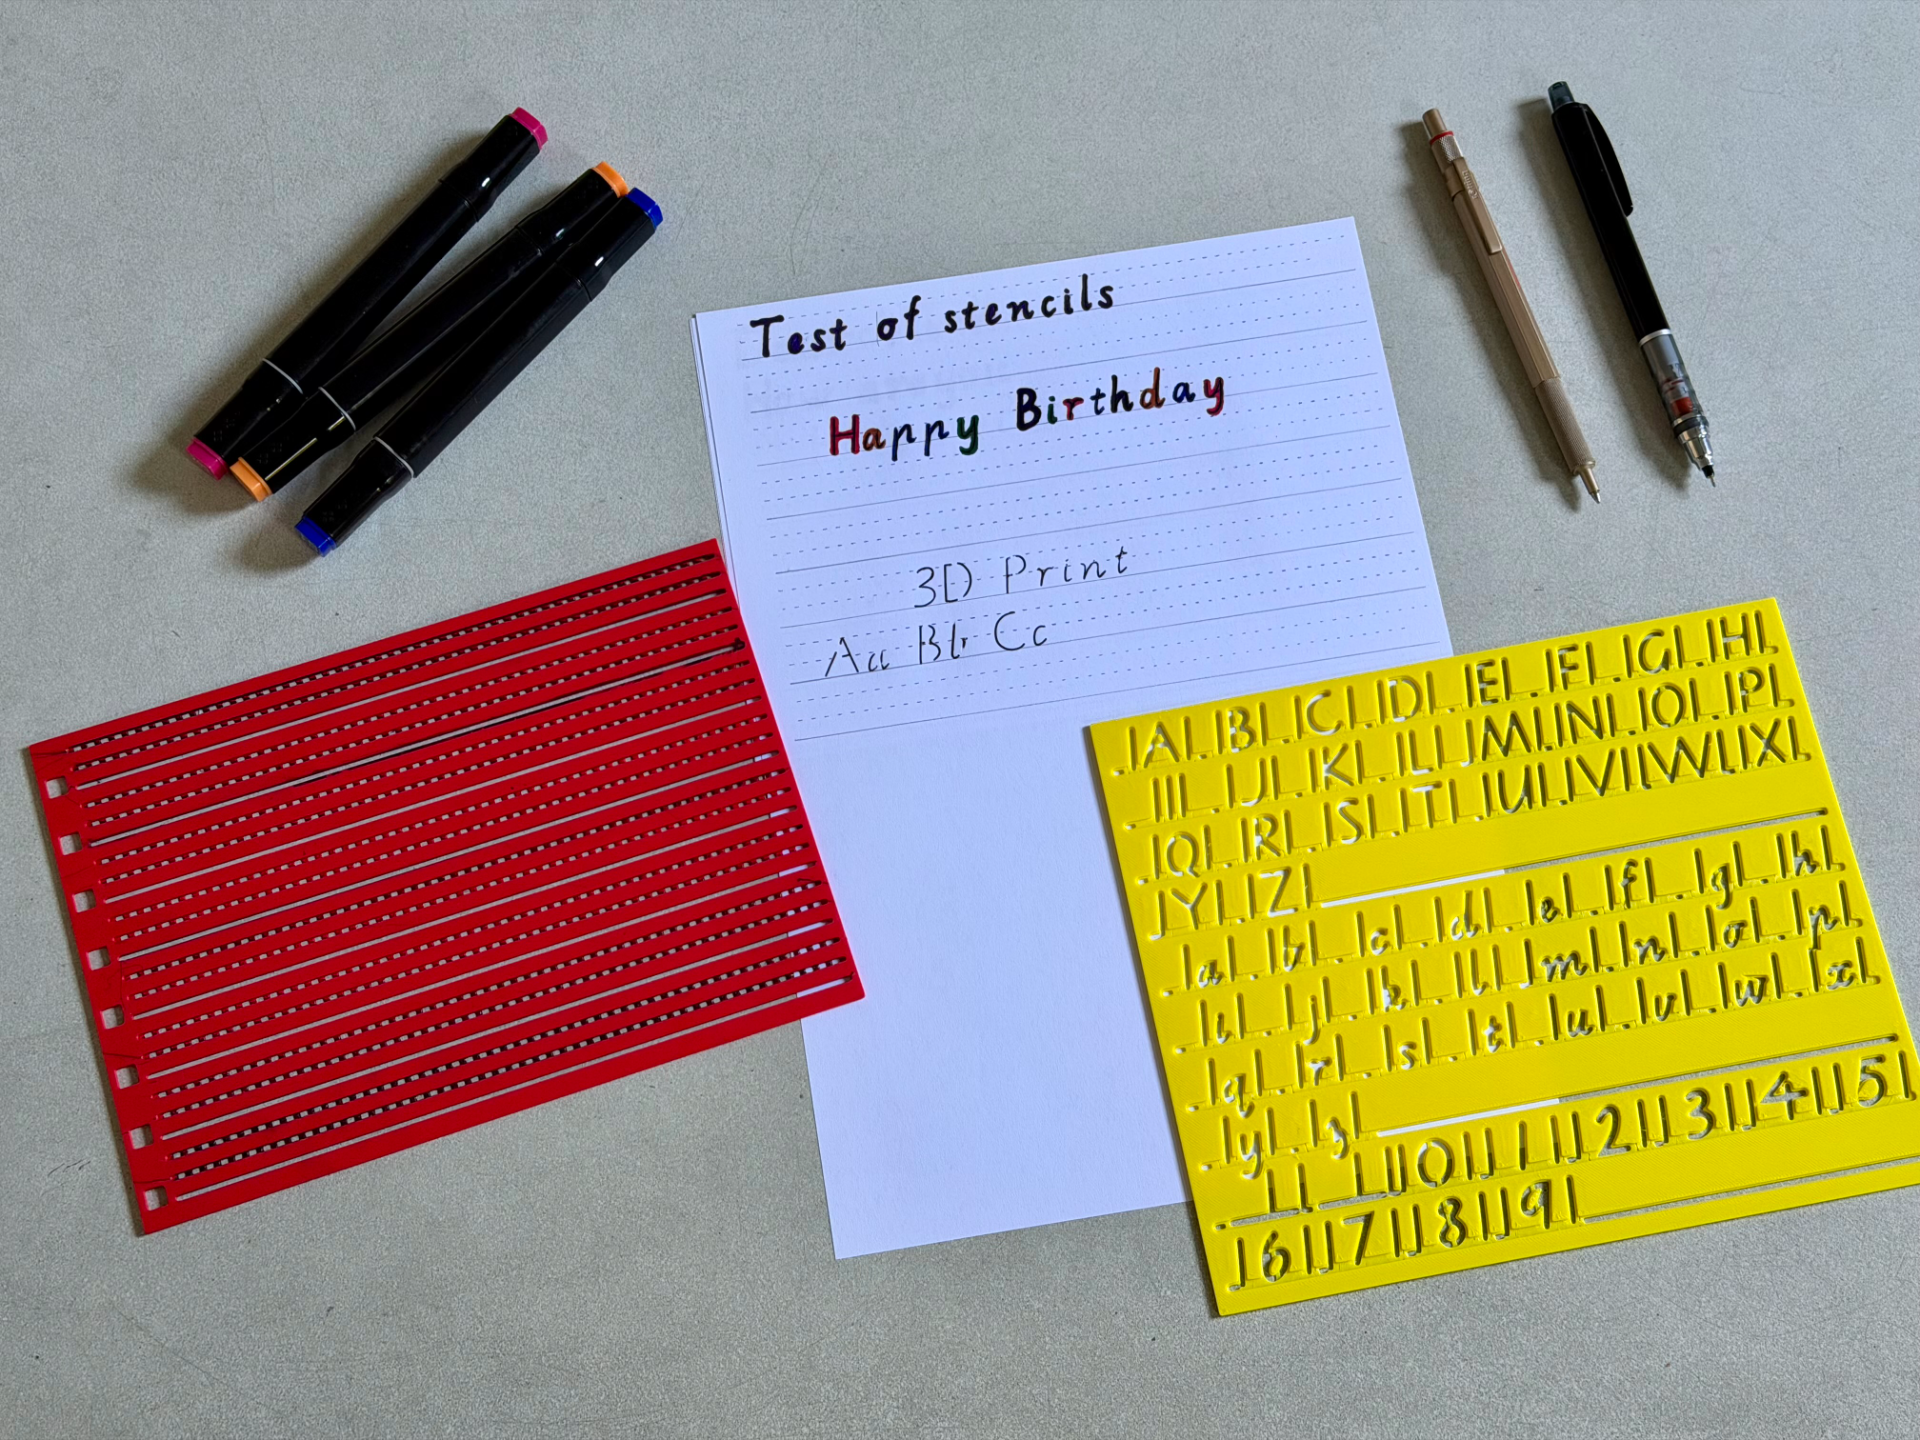 Test of stencils
Happy Birthday
3D Print
Aa Bb Cc
A B C D E F G H
I J K L M N O P
Q R S T U V W X
Y Z
a b c d e f g h
i j k l m n o p
q r s t u v w x
y z
0 1 2 3 4 5
6 7 8 9